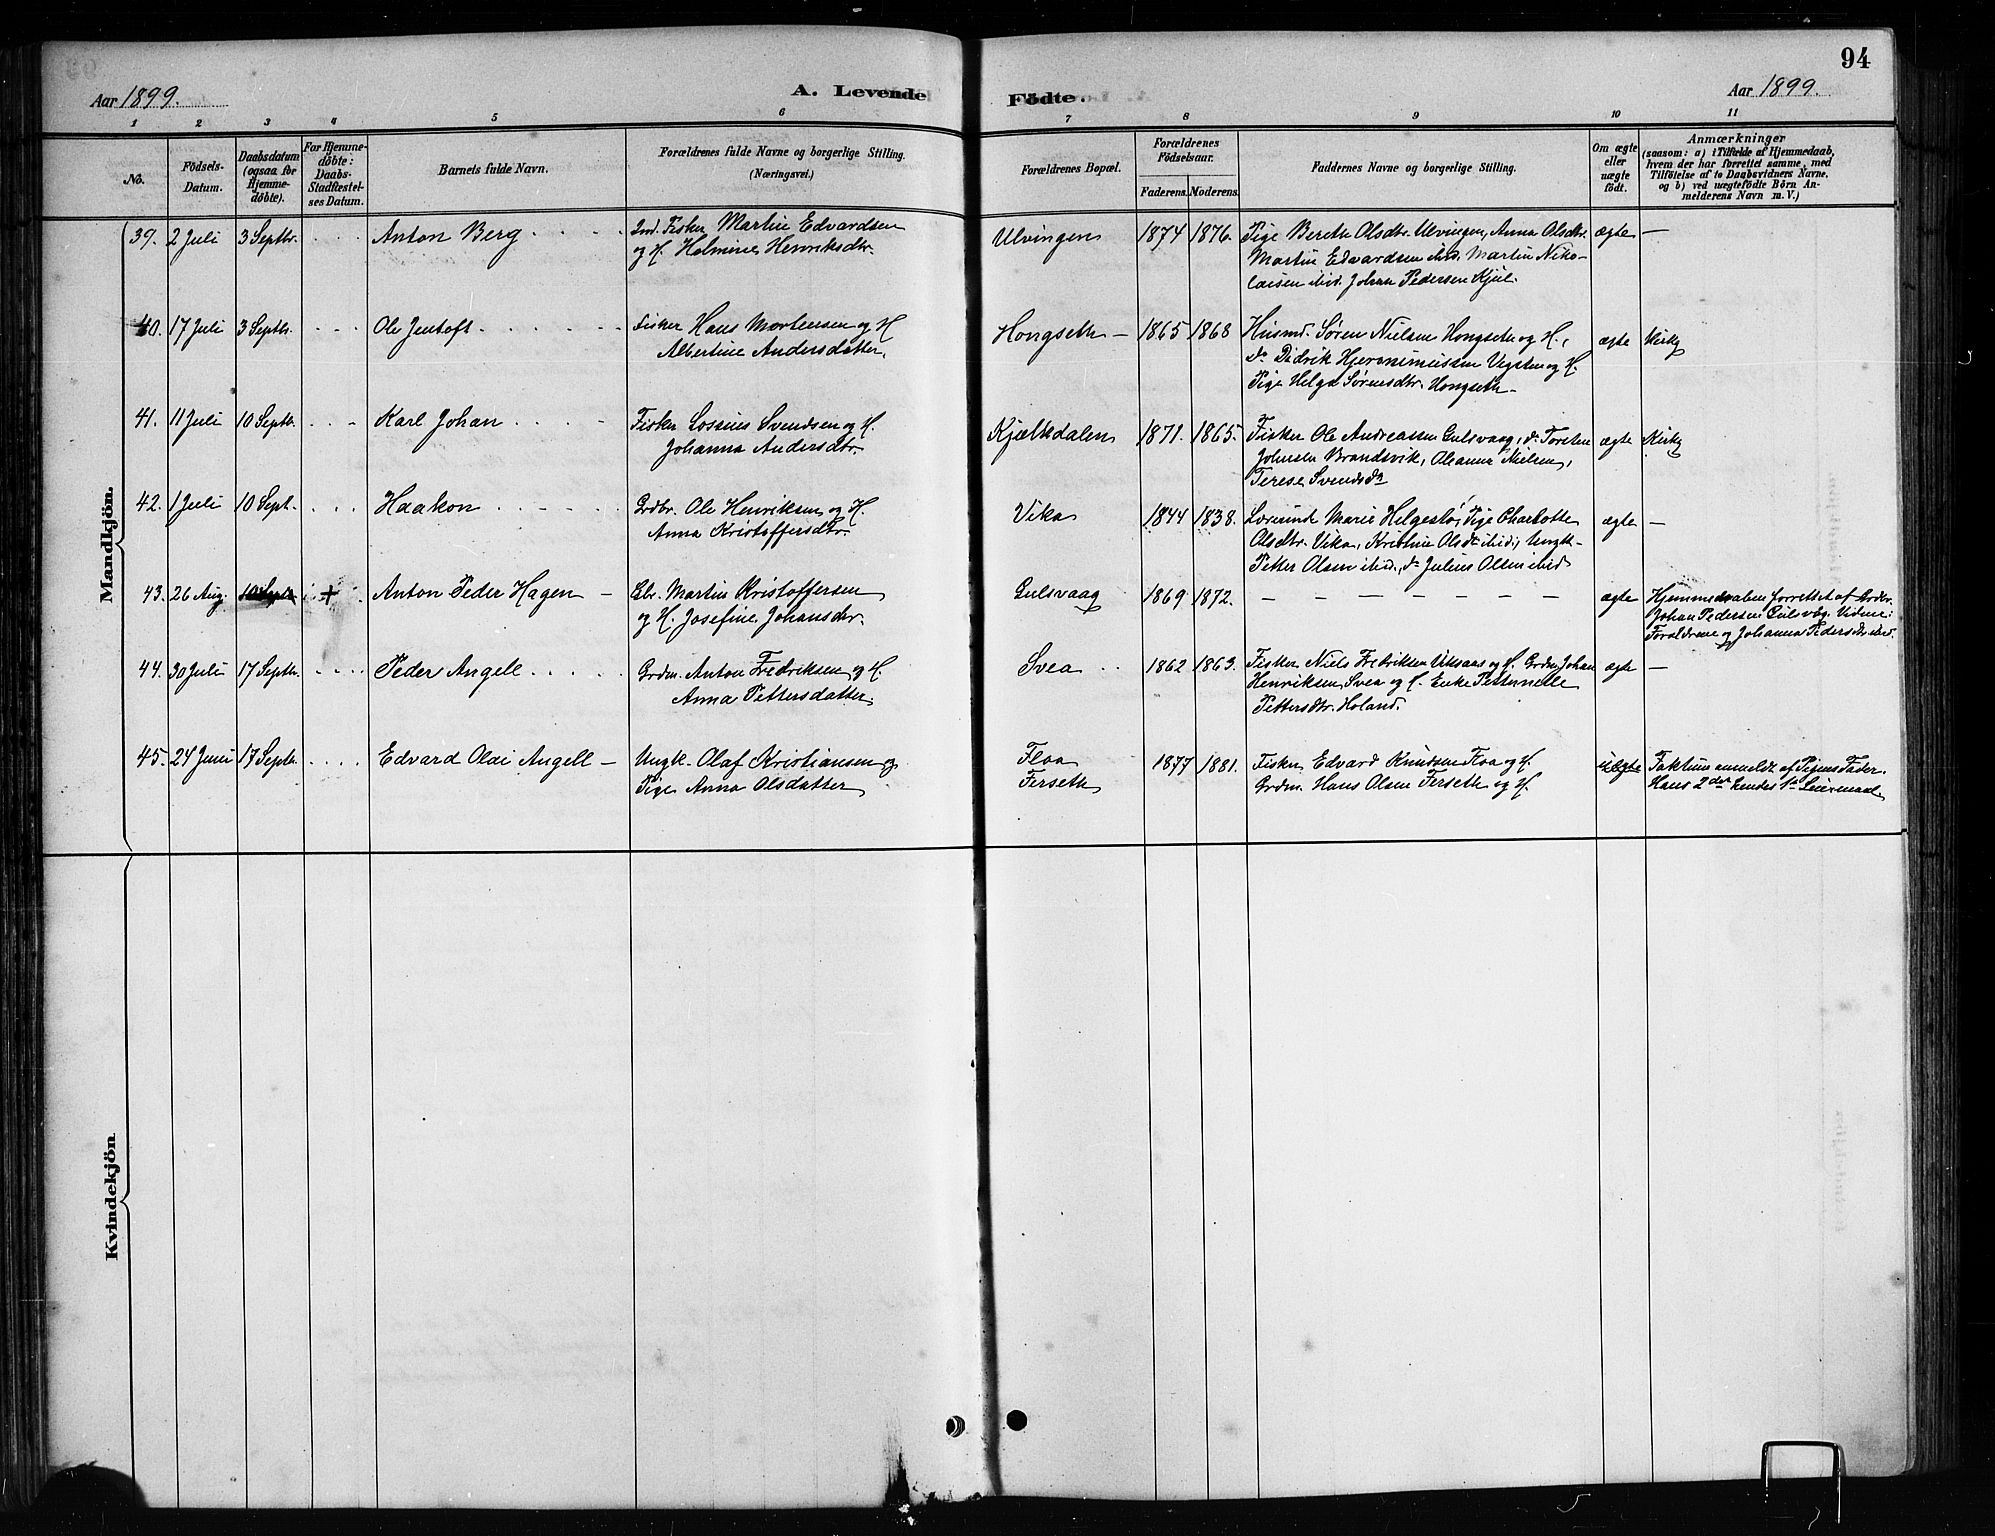 94
Aar 1899. A. Levende Födte. Aar 1899.
1 2 3 4 5 6 7 8 9 10 11
No.
Födsels-
Datum.
Daabsdatum
(ogsaa for
Hjemme-
döbte).
For Hjemme-
döbte:
Daabs-
Stadfæstel-
ses Datum.
Barnets fulde Navn.
Forældrenes fulde Navne og borgerlige Stilling.
(Næringsvei.)
Forældrenes Bopæl.
Forældrenes
Födselsaar.
Faderens. Moderens.
Faddernes Navne og borgerlige Stilling.
Om ægte
eller
uægte
födt.
Anmærkninger
(saasom: a) i Tilfælde af Hjemmedaab,
hvem der har forrettet samme, med
Tilföielse af to Daabsvidners Navne,
og b) ved uægtefödte Börn An-
melderens Navn m. V.)
Mandkjön.
39. 2 Juli 3 Septbr. Anton Berg
Ind. Fisker Martin Edvardsen
og H. Halmine Henriksdtr.
Ulvingen 1874 1876.
Pige Bereth Olsdtr. Ulvingen, Anna Olsdtr.
Martin Edvardsen ibid. Martin Niko-
laisen ibid. Johan Pedersen Kjul.
ægte —
40. 17 Juli 3 Septb. Ole Jentoft
Fisker Hans Mortensen og H
Albertine Andersdatter.
Hongseth — 1865 1868
Husmd. Søren Nielsen Hongseth og H.,
do Didrik Hjeronimussen Vegsten og H.
Pige Helga Sørensdtr. Hongseth —
ægte Kirke
41. 11 Juli 10 Septb. Karl Johan
Fisker Lossius Svendsen og H.
Johanna Andersdtr.
Kjælkdalen 1871. 1865.
Fisker Ole Andreassen Gulsvaag, do Torsten
Johnsen Brandsvik, Oleanna Nielsen,
Terese Svendsdr
ægte Kirke
42. 1 Juli 10 Sept. Haakon
Grdbr. Ole Henriksen og H
Anna Kristoffersdtr.
Vika 1844 1838.
Lærerinde Marie Helgestø, Pige Charlotte
Olsdtr. Vika, Kristine Olsdt ibid, Ungk-
Petter Olsen ibid, do Julius Olsen ibid
ægte —
43. 26 Aug. 10 Septb + Anton Peder Hagen —
Gbr. Martin Kristoffersen
og H. Josefine Johansdtr.
Gulsvaag 1869 1872. — — — — — — — —
ægte
Hjemmedaaben forrettet af Grdbr.
Johan Pedersen Gulsvåg. Vidne:
Forældrene og Johanna Pedersdtr ibid.
44. 30 Juli 17 Septb. Peder Angell
Grdm. Anton Fredriksen og H.
Anna Pettersdatter
Svea 1862 1863.
Fisker Niels Fredriksen Uksaas og H. Grdm Johan
Henriksen Svea og H. Enke Petternelle
Pettersdtr. Holand.
ægte —
45. 24 Juni 17 Septb. Edvard Olai Angell —
Ungk. Olaf Kristiansen og
Pige Anna Olsdatter
Floa
Ferseth
1877 1881.
Fisker Edvard Knudsen Floa og H.
Grdm. Hans Olsen Ferseth og H.
uægte
Faktum anmeldt af Pigens Fader.
Hans 2det hendes 1ste Leiermaal.
Kvindekjön